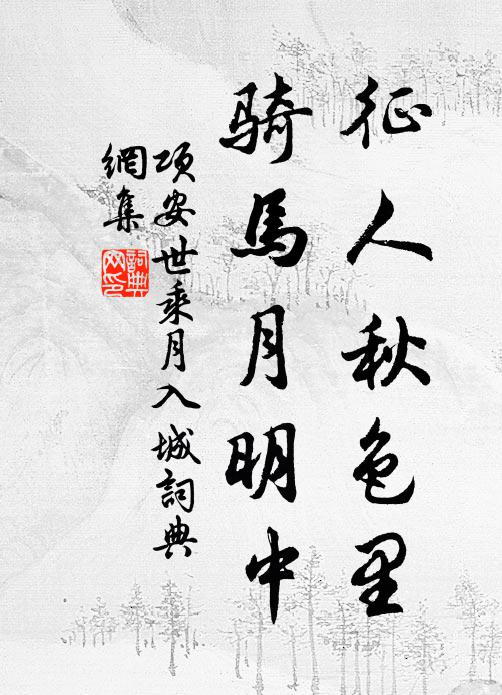 征人秋色里
騎馬月明中
項安世乘月入城詞典
網集
詞典
网印